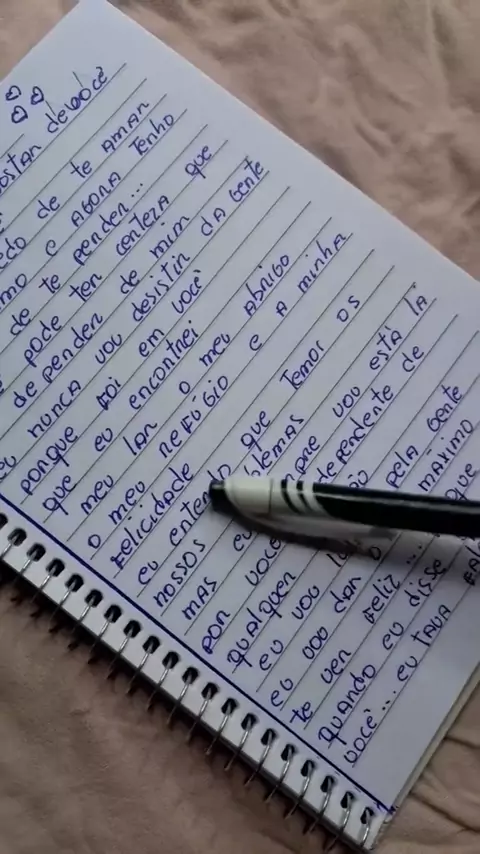 gostar de você
de te amar
mo e agora tenho
de te perder...
pode ter certeza que
depender de mim
eu nunca vou desistir da gente
porque foi em você
que eu encontrei
meu lar o meu abrigo
o meu refúgio e a minha
felicidade
eu que temos os
nossos
mas eu sempre vou está lá
por você dependente de
qualquer
eu vou pela gente
eu voo dar o máximo
te ver feliz... que
quando eu disse
você... eu tava